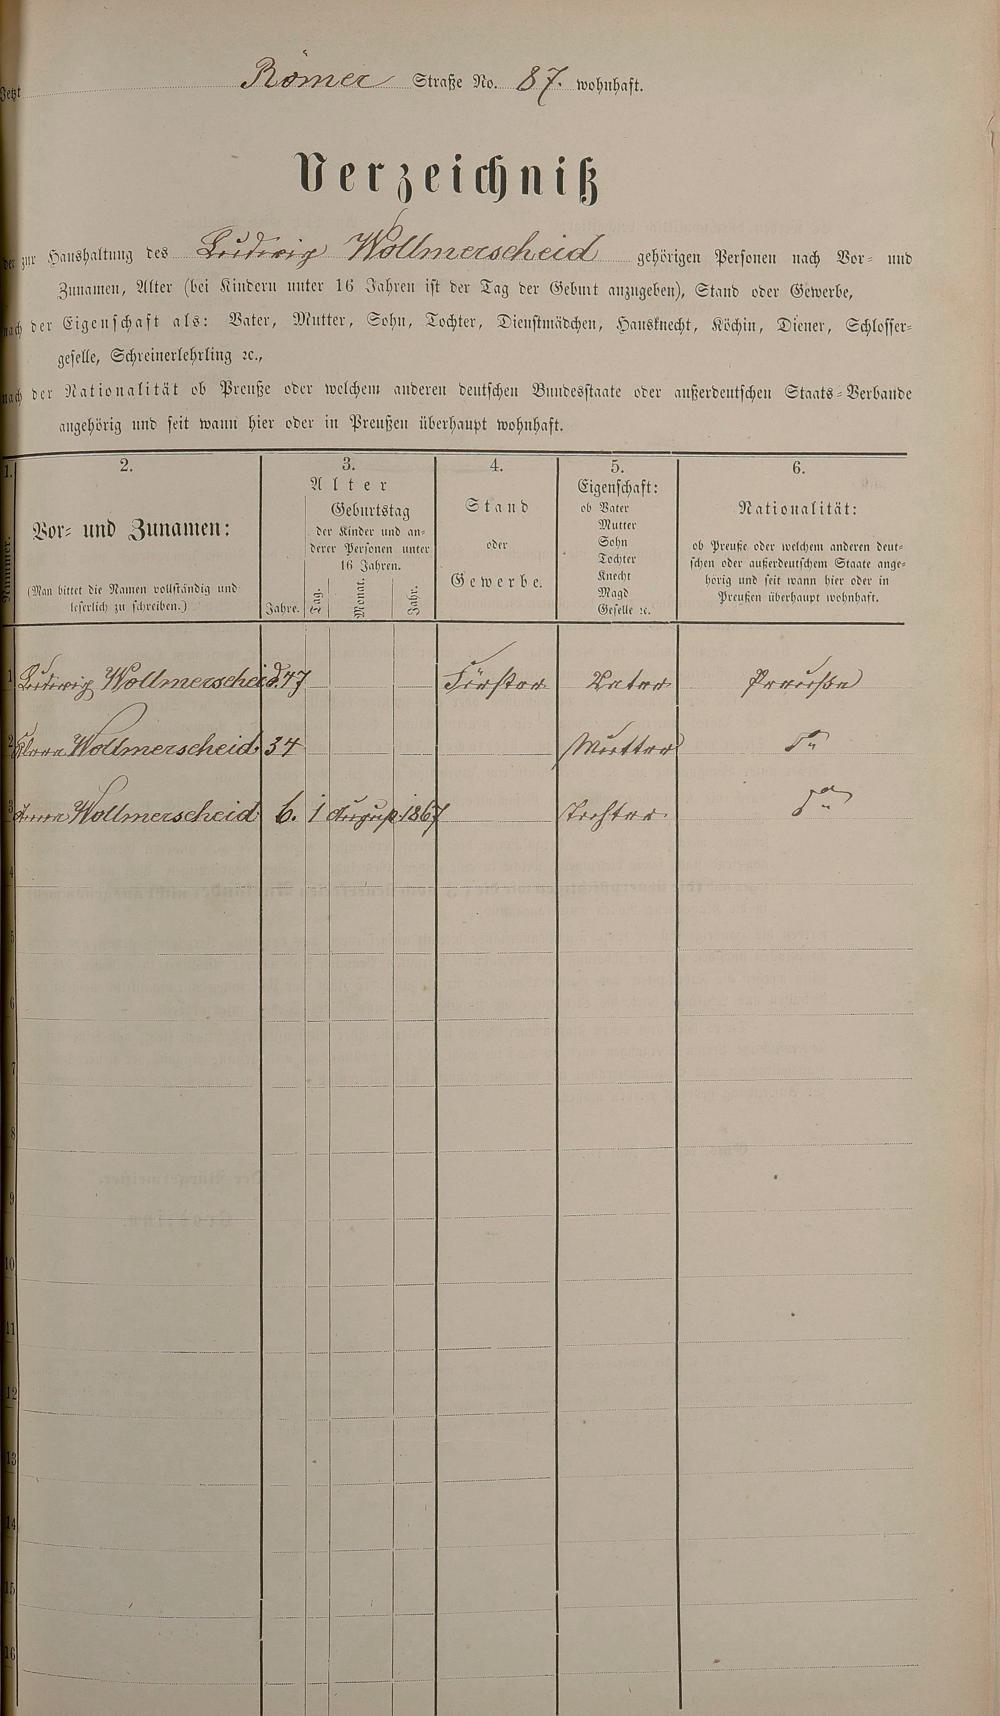 Jetzt Römer Straße No. 87. wohnhaft.
Verzeichniß
der zur Haushaltung des Ludwig Wollmerscheid gehörigen Personen nach Vor- und
Zunamen, Alter (bei Kindern unter 16 Jahren ist der Tag der Geburt anzugeben), Stand oder Gewerbe,
nach der Eigenschaft als: Vater, Mutter, Sohn, Tochter, Dienstmädchen, Hausknecht, Köchin, Diener, Schlosser-
geselle, Schreinerlehrling ꝛc.,
nach der Nationalität ob Preuße oder welchem anderen deutschen Bundesstaate oder außerdeutschen Staats-Verbande
angehörig und seit wann hier oder in Preußen überhaupt wohnhaft.
1. 2. 3. 4. 5. 6.
Nummer.
Vor- und Zunamen:
(Man bittet die Namen vollständig und
leserlich zu schreiben.)
Alter
Jahre.
Geburtstag
der Kinder und an-
derer Personen unter
16 Jahren.
Tag. Monat. Jahr.
Stand
oder
Gewerbe.
Eigenschaft:
ob Vater
Mutter
Sohn
Tochter
Knecht
Magd
Geselle ꝛc.
Nationalität:
ob Preuße oder welchem anderen deut-
schen oder außerdeutschem Staate ange-
hörig und seit wann hier oder in
Preußen überhaupt wohnhaft.
1 Ludwig Wollmerscheid. 47 Förster Vater Preuße
2 Klara Wollmerscheid 34 Mutter do
3 Anna Wollmerscheid 6. 1 August 1867 Tochter do
4
5
6
7
8
9
10
11
12
13
14
15
16